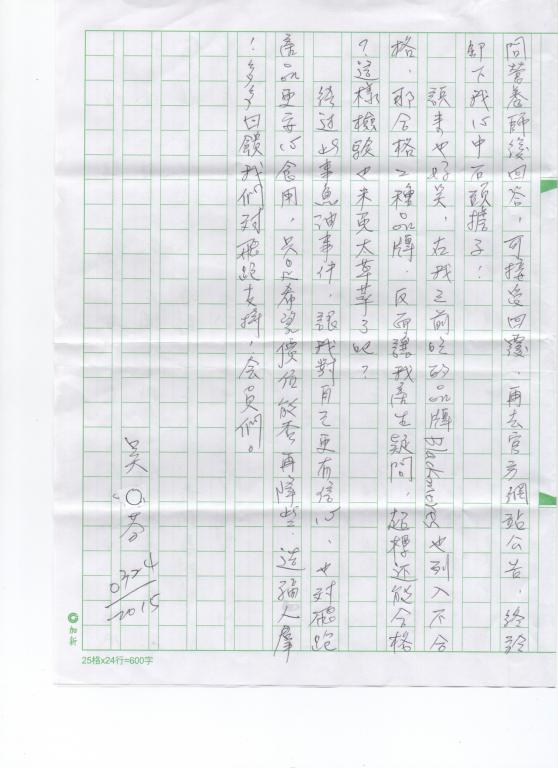 問營養師後回答，可接受回覆，再去官方網站公告，終於
卸下我心中石頭擔子！
說來也好笑，在我之前吃的品牌Blackmores也列入不合
格，那合格2種品牌，反而讓我產生疑問，超標還能合格
？這樣檢驗也未更太草莽了吧？
經過此事魚油事件，讓我對自己更有信心，也對飛跑
產品更安心食用，只是希望價位能否再降些，造福人羣
！多多回饋我們對飛跑支持，會員們。
吳○芬
0324
2015
加新
25格x24行=600字